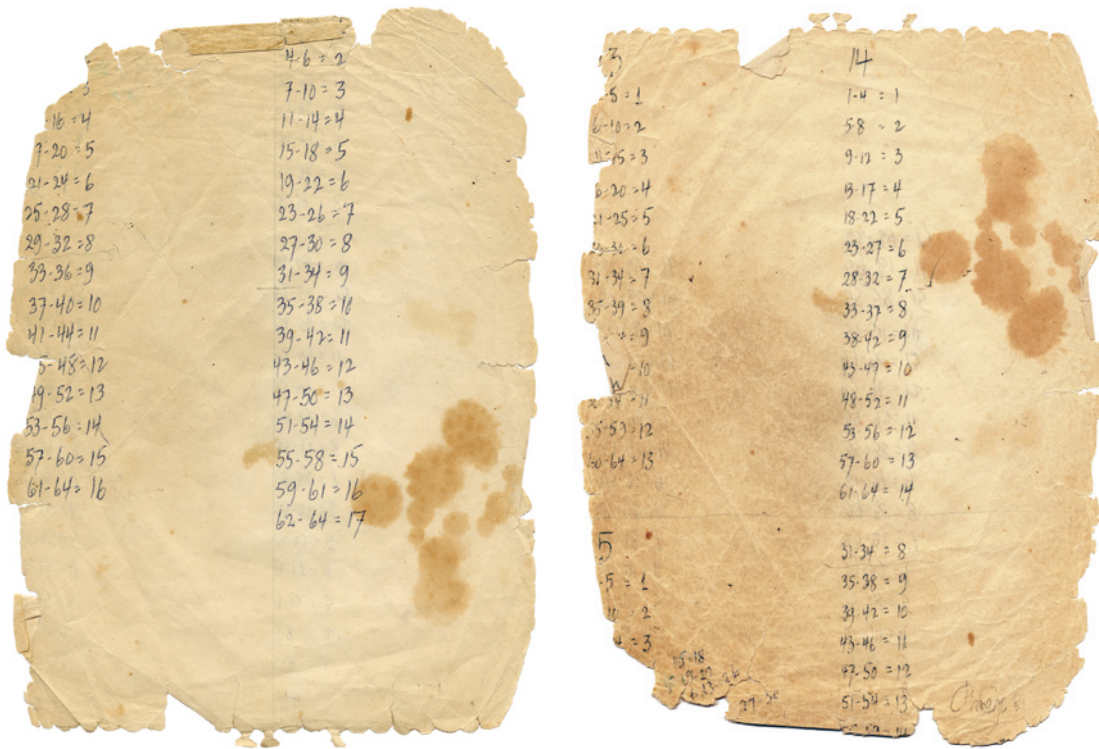 -16=4
7-20=5
21-24=6
25-28=7
29-32=8
33-36=9
37-40=10
41-44=11
5-48=12
49-52=13
53-56=14
57-60=15
61-64=16
4-6=2
7-10=3
11-14=4
15-18=5
19-22=6
23-26=7
27-30=8
31-34=9
35-38=10
39-42=11
43-46=12
47-50=13
51-54=14
55-58=15
59-61=16
62-64=17
3
-5=1
6-10=2
11-15=3
6-20=4
21-25=5
=6
31-34=7
35-39=8
=9
-10
=11
55-59=12
60-64=13
5
-5=1
10=2
=3
15-18
19-22
23-26
27-30
14
1-4=1
5-8=2
9-12=3
13-17=4
18-22=5
23-27=6
28-32=7
33-37=8
38-42=9
43-47=10
48-52=11
53-56=12
57-60=13
61-64=14
31-34=8
35-38=9
39-42=10
43-46=11
47-50=12
51-54=13